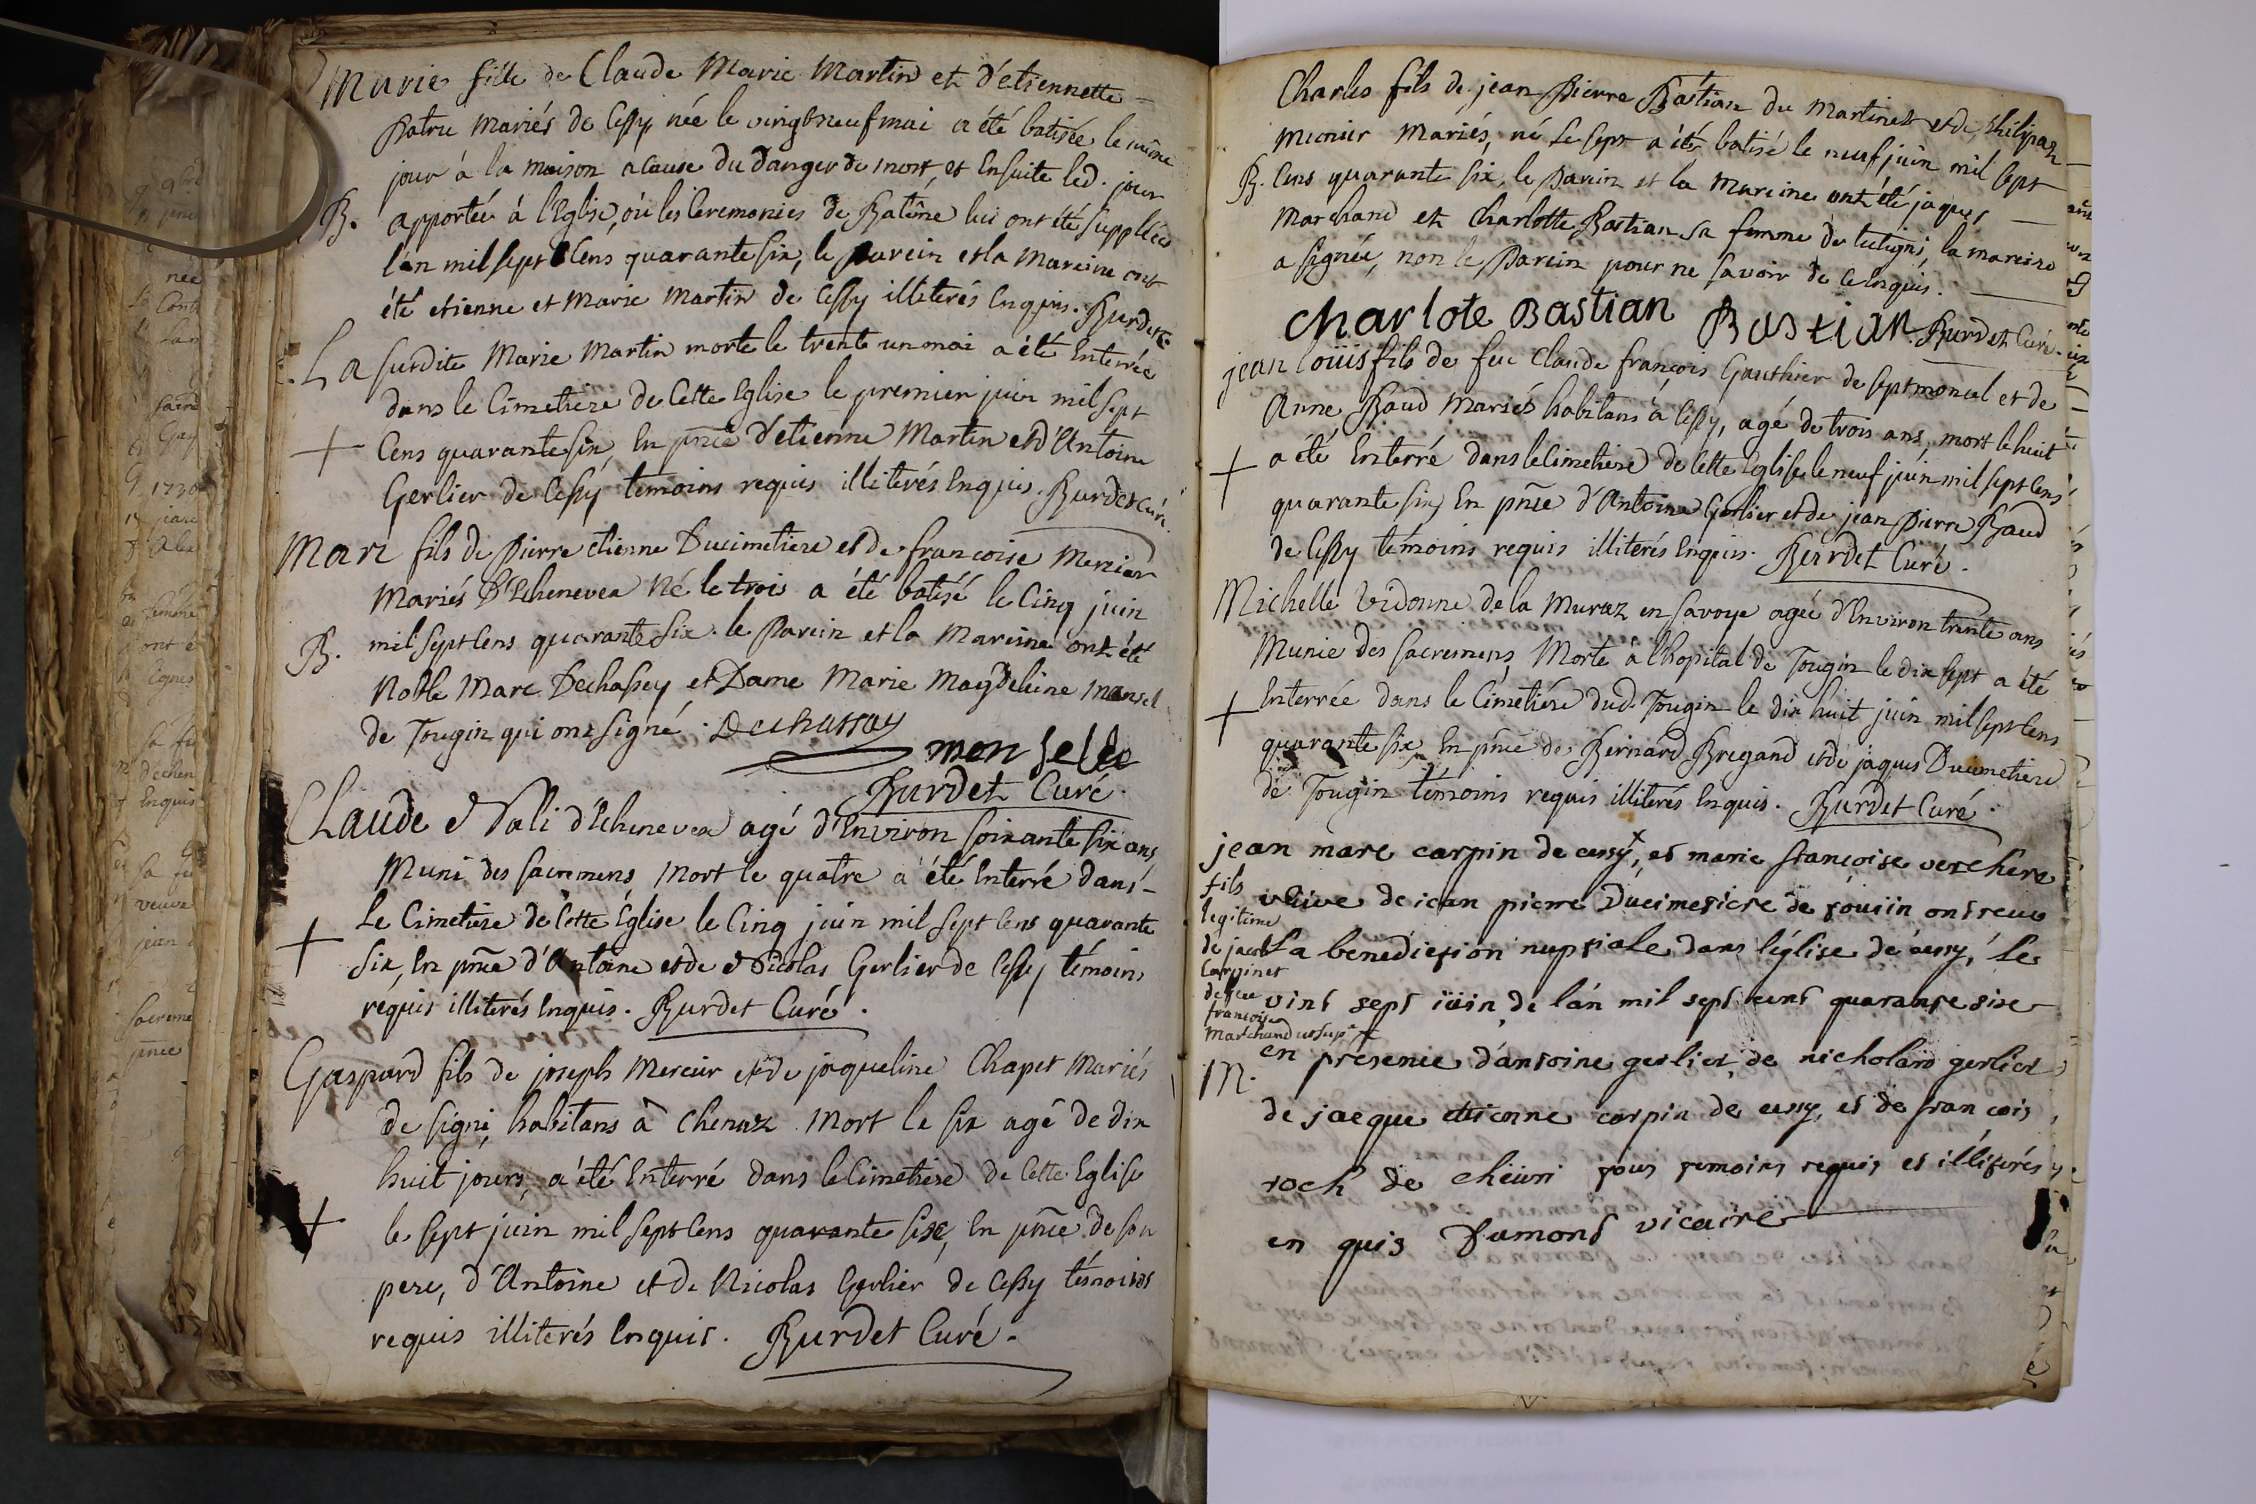 Marie fille de Claude Marie Martin et d'etiennette
Patru mariés de Cessy née le vingtneuf mai a été batisée le même
jour à la maison a cause du danger de mort, et Ensuite led. jour
B. apportée à l'Eglise, où les Ceremonies de Batême lui ont été supplées
l'an mil sept Cens quarante six, le parein et la mareine ont
été etienne et Marie Martin de Cessy illiterés Enquis. Burdet
La susdite Marie Martin morte le trente un mai a été Enterrée
dans le Cimetiere de Cette Eglise le premier juin mil sept
+ Cens quarante six, En pnce d'etienne Martin et d'Antoine
Gerlier de Cessy temoins requis illiterés Enquis. Burdet Curé
Marc fils de Pierre etienne Ducimetiere et de francoise Mercier
mariés D'Echenevex Né le trois a été batisé le Cinq juin
B. mil sept Cens quarante six. le Parein et la Mareine ont été
Noble Marc Dechassey et Dame Marie Magdeleine
de Tougin qui ont signé. Dechassay
Burdet Curé.
Claude Nali d'Echenevex agé d'Environ soixante six ans
Muni des sacremens mort le quatre a été Enterré dans
Le Cimetiere de Cette Eglise le Cinq juin mil sept Cens quarante
+ six, En pnce d'Antoine et de Nicolas Gerlier de Cessy témoins
requis illiterés Enquis. Burdet Curé.
Gaspard fils de joseph Mercier et de jaqueline Chapet Mariés
de signi, habitans à Chenaz mort le six agé de dix
huit jours, a été Enterré dans le Cimetiere de Cette Eglise
+ le sept juin mil sept Cens quarante six, En pnce de son
pere, d'Antoine et de Nicolas Gerlier de Cessy témoins
requis illiterés Enquis. Burdet Curé.
Charles fils de jean Pierre Bastian du Martinet et de
Munier Mariés, né le sept a été batisé le neuf juin mil sept
B. Cens quarante six, le Parein et la Mareine ont été jaques
Marchand et Charlotte Bastian sa femme de lutigni, la mareine
a signée, non le Parein pour ne savoir de ce Enquis.
charlote Bastian Bastian. Burdet Curé.
jean loüis fils de feu Claude françois Gauthier de septmoncel et de
Anne Baud Mariés habitans à Cessy, agé de trois ans, mort le huit
+ a été Enterré dans le Cimetiere de Cette Eglise le neuf juin mil sept Cens
quarante six, En pnce d'Antoine Gerlier et de jean Pierre Baud
de Cessy témoins requis illiterés Enquis. Burdet Curé.
Michelle Vidonne de la Muraz en savoye agée d'Environ trente ans
Munie des sacremens, Morte à l'hopital de Tougin le dix sept a été
+ Enterrée dans le Cimetiére dud. Tougin le dix huit juin mil sept Cens
quarante six, En pnce de Bernard Bregand et de jaques Ducimetiere
de Tougin témoins requis illiterés Enquis. Burdet Curé.
jean marc carpin de cessy x, et marie francoise verchere
veuve de jean pierre Ducimetiere de tougin ont recu
la benediction nuptiale dans l'église de cessy, le
vint sept iuin de lan mil sept cent quarante six
fils
legitime
de jacob
Carpinet
de feue
francoise
Marchand
M. en presence d'antoine gerlier, de nicholard gerlier
de jacque etienne carpin de cessy, et de francois
roch de tous temoins requis et illiterés
en quis Dumont vicaire